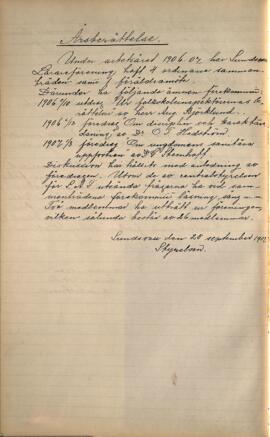 Årsberättelse.
Under arbetsåret 1906-07 har Sundsvalls
Lärareförening haft 4 ordinarie samman-
träden samt 1 föräldramöte.
Därunder ha följande ämnen förekommit:
1906 10 utdrag "Ur folkskoleinspektörernas be-
rättelser" av herr Aug. Björklund.
1906 föredrag "Om disciplin och karaktärs-
daning" av Dr O. T. Hedström.
1907 3 föredrag "Om ungdomens sanitära
uppfostran" av Dr Stenhoff.
Diskussion har hållits med anledning av
föredragen. Utom de av centralstyrelsen
för S.A.F. utsända frågorna ha vid sam-
manträdena förekommit läsning, sång
Två medlemmar ha utträtt ur föreningen,
vilken sålunda består av 26 medlemmar.
Sundsvall den 20 september 1907.
Styrelsen.